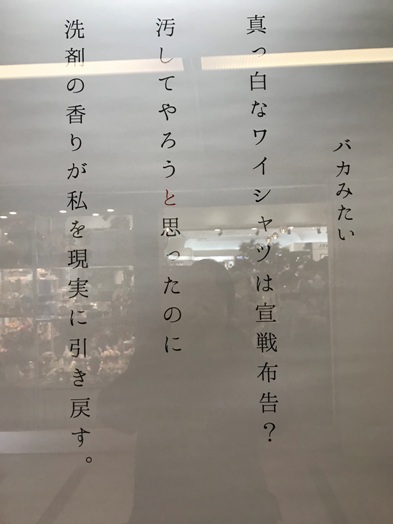 バカみたい
真っ白なワイシャツは宣戦布告？
汚してやろうと思ったのに
洗剤の香りが私を現実に引き戻す。